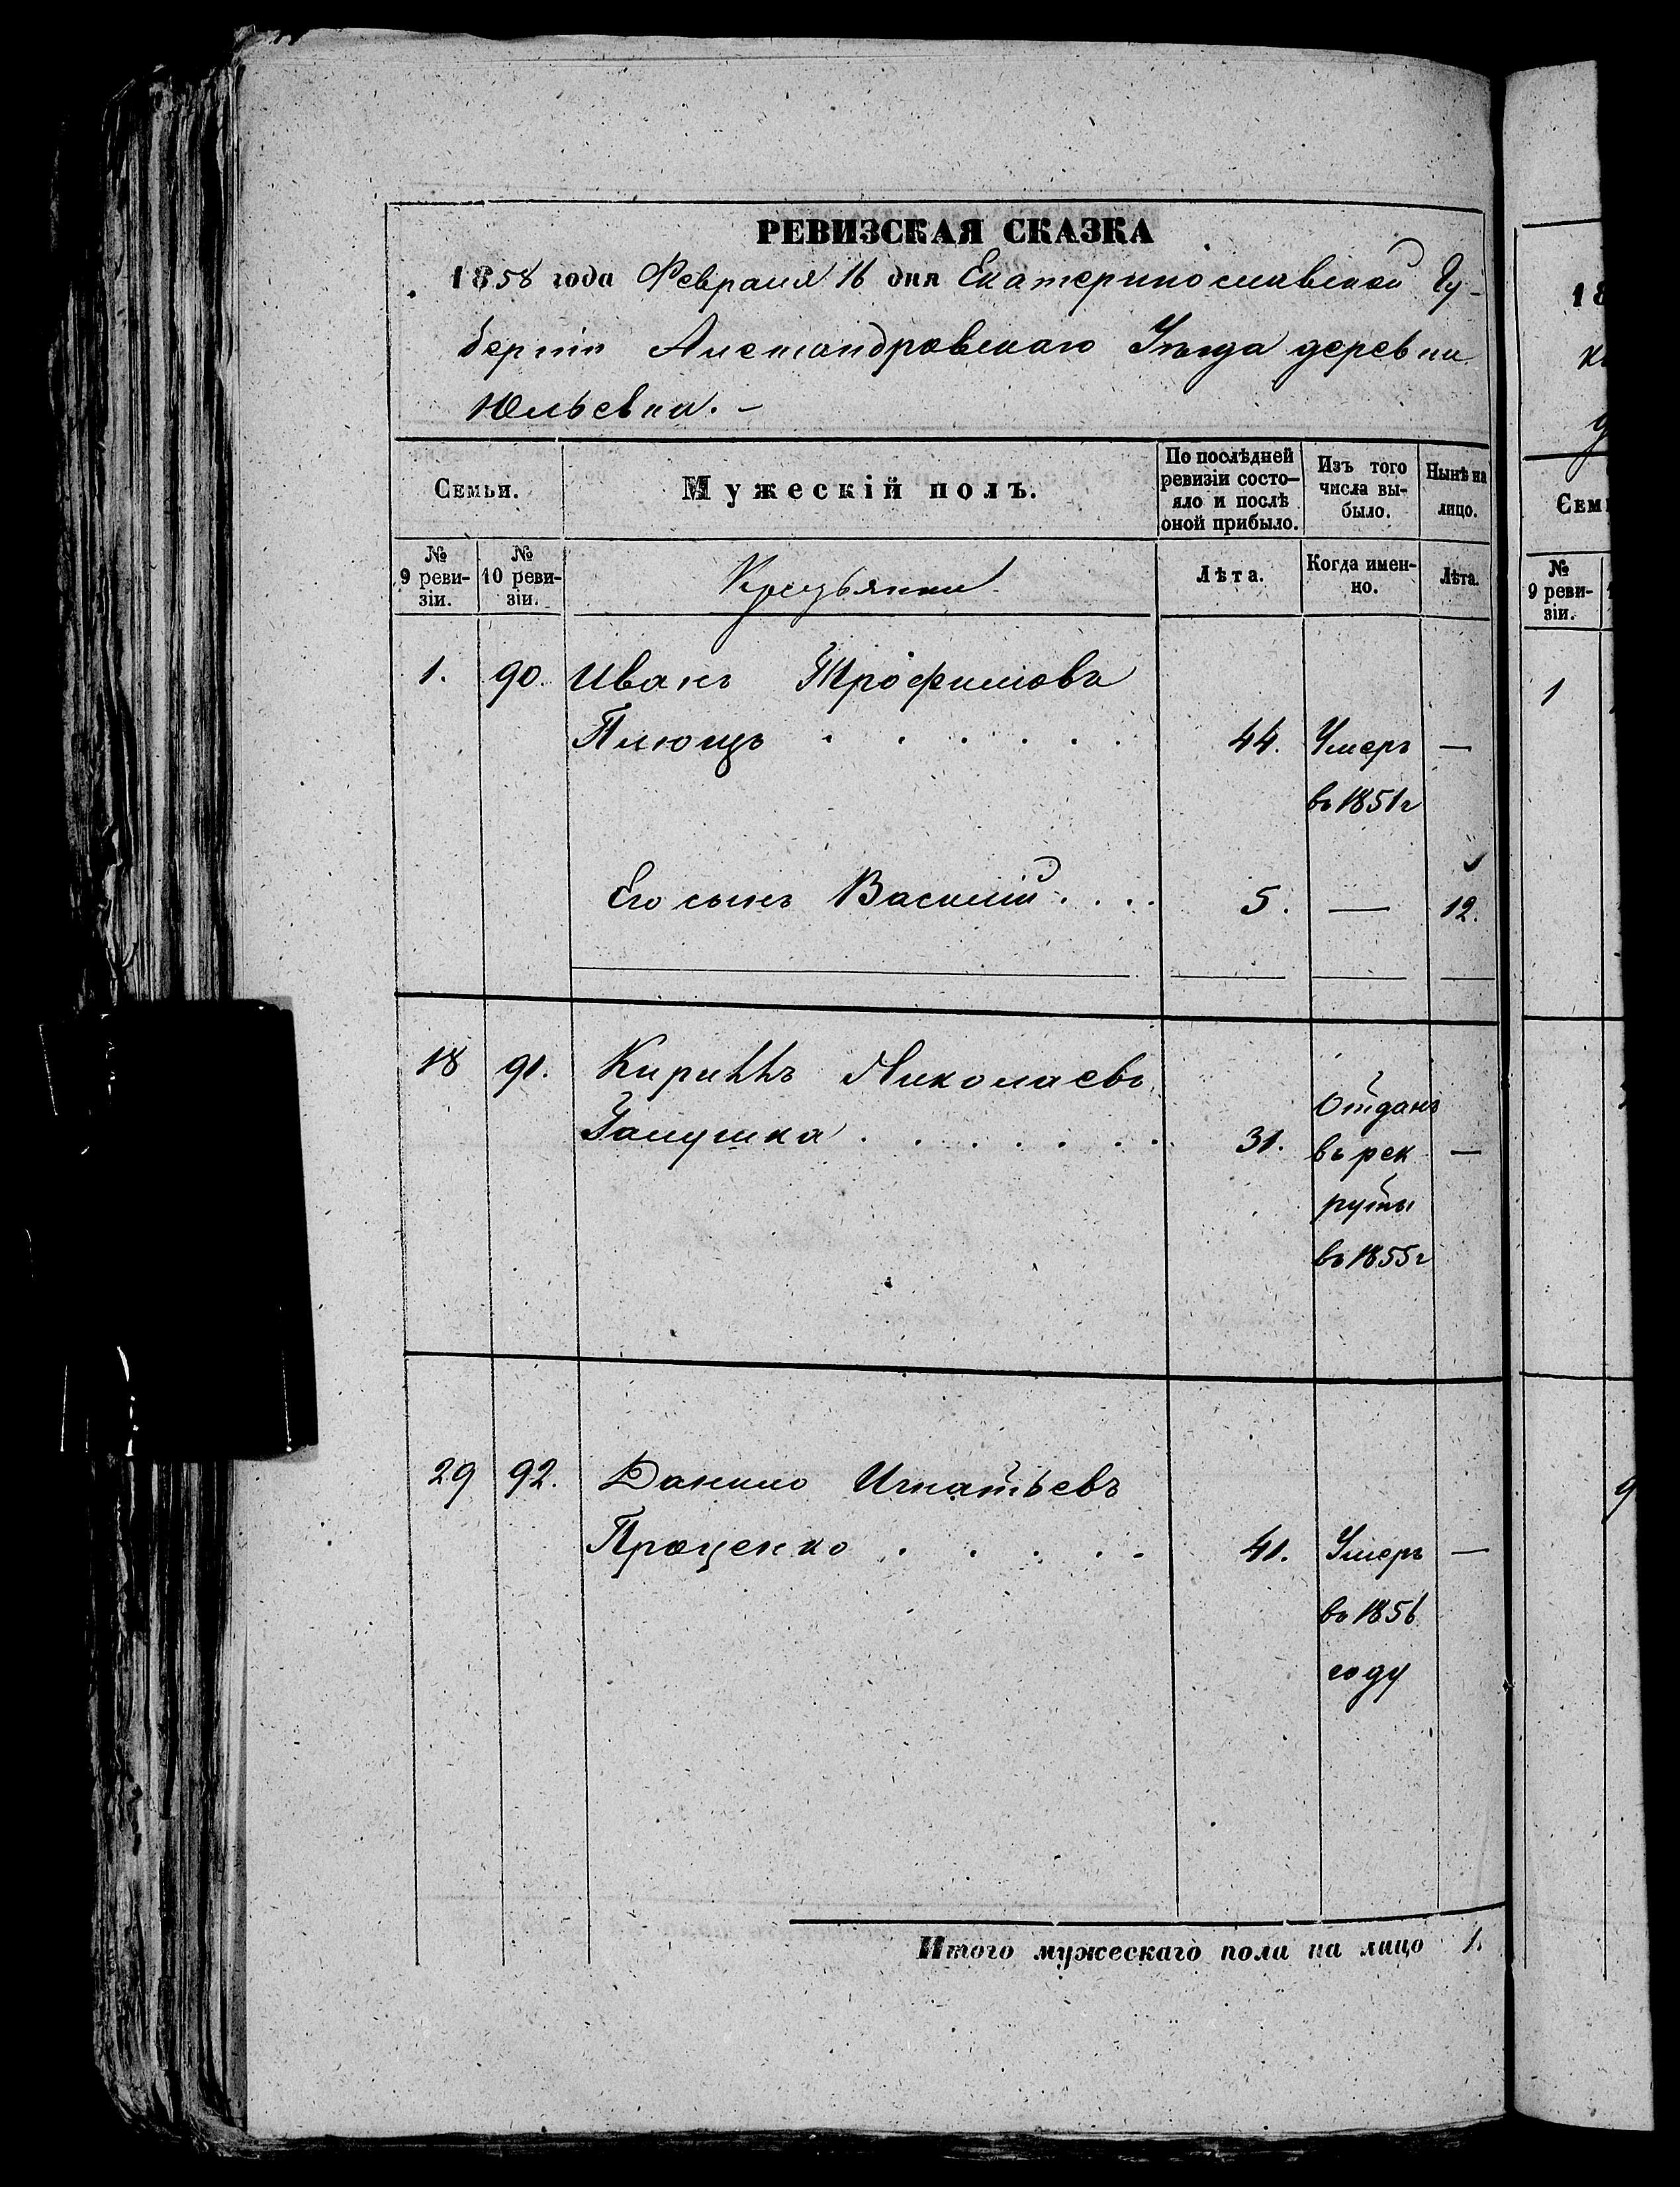 РЕВИЗСКАЯ СКАЗКА
1858 года Февраля 16 дня Екатеринославской Гу-
берніи Александровскаго Уѣзда деревни
Юльевки. –
Семьи.
Мужескій полъ.
По послѣдней
ревизіи состо-
яло и послѣ
оной прибыло.
Изъ того
числа вы-
было.
Нынѣ на
лицо.
№
9 реви-
зіи.
№
10 реви-
зіи.
Крестьяне
Лѣта.
Когда имен-
но.
Лѣта.
1. 90. Иванъ Трофимовъ
Плющъ . . . . . . 44. Умеръ —
въ 1851 г
Его сынъ Василій . . . . 5. — 12.
18 91. Кириллъ Николаевъ
Галушка . . . . . . . 31. Отданъ
въ рек —
руты
въ 1855 г
29 92. Данило Игнатьевъ
Проценко . . . . . 41. Умеръ —
въ 1856
году
Итого мужескаго пола на лицо 1.
18
Сем
№
9 реви-
зіи.
1